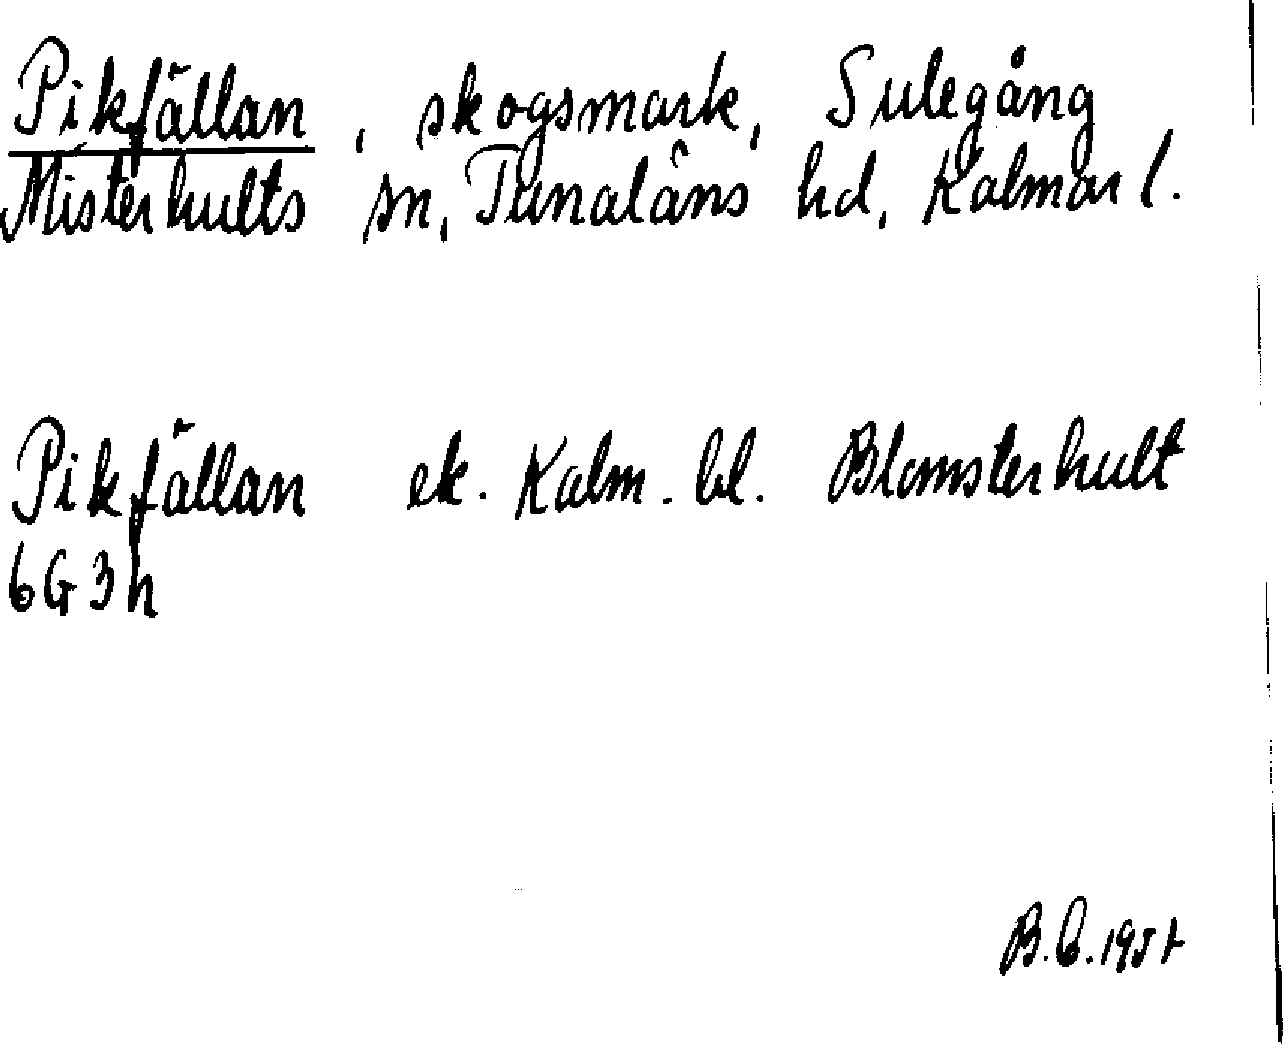 Pikfällan, skogsmark, Sulegång
Misterhults sn, Tunaläns hd, Kalmar l.
Pikfällan ek. Kalm. bl. Blomsterhult
6G3h
B.C. 1957